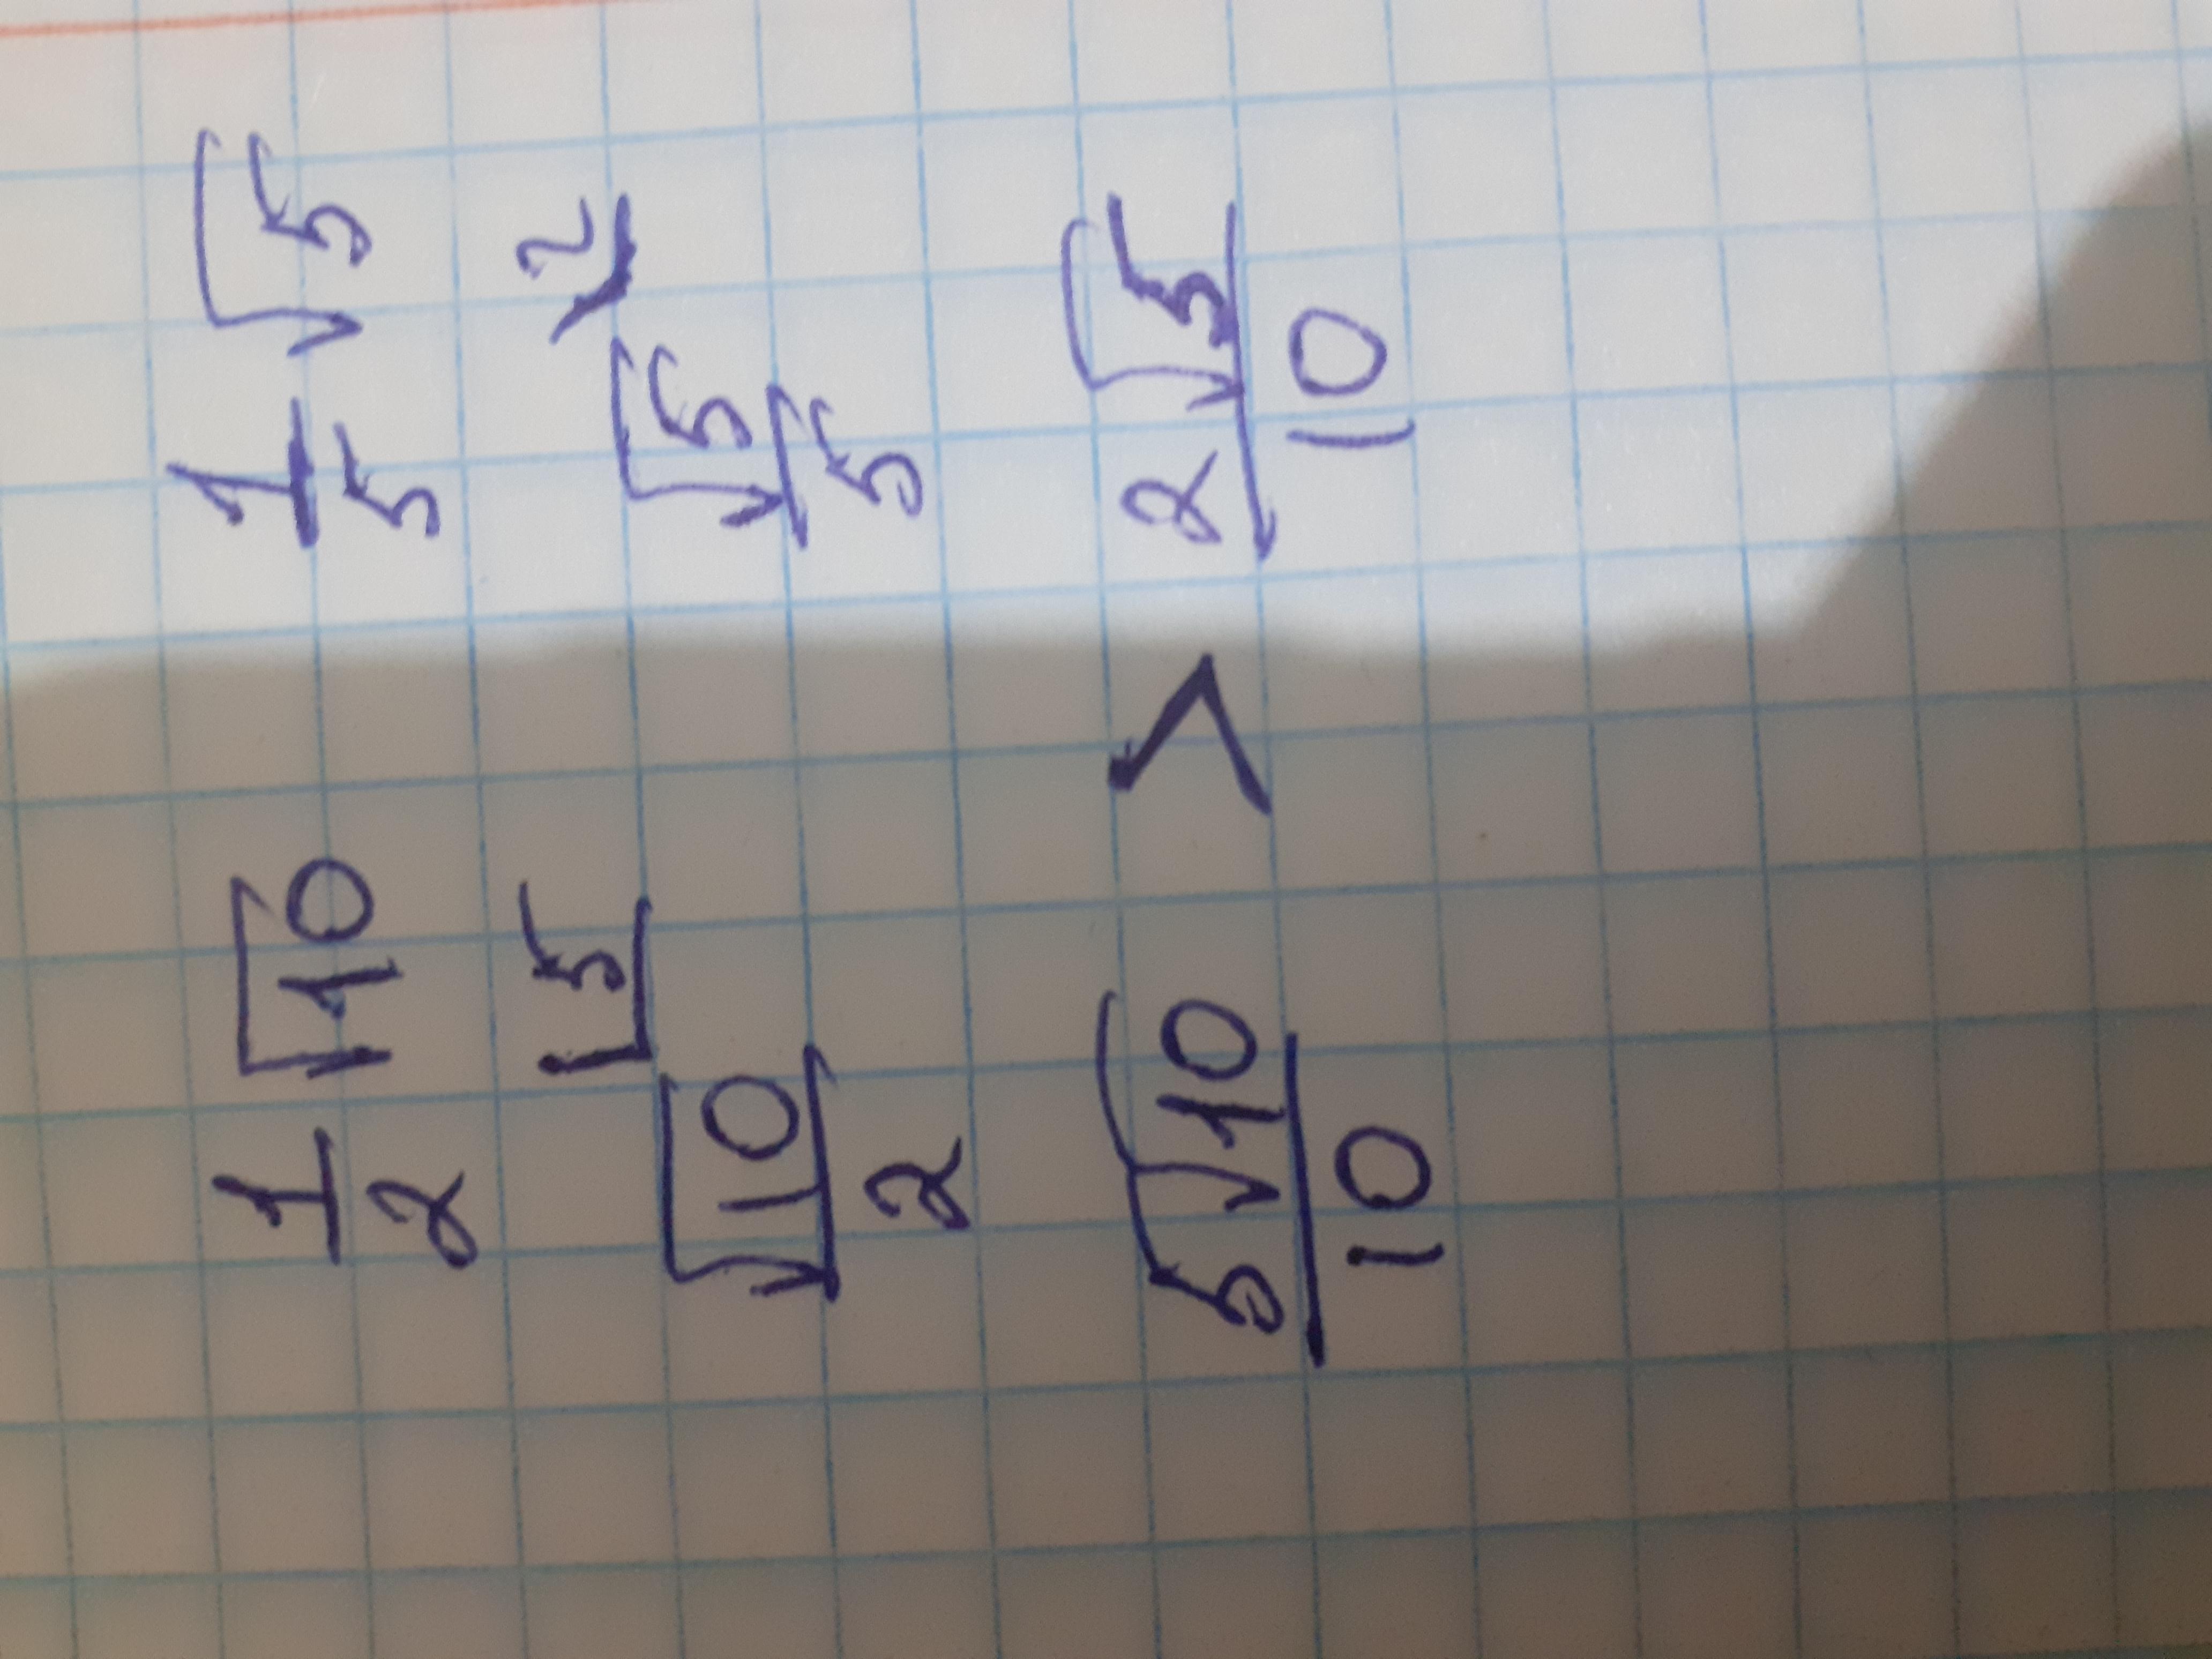 1/2 √10 1/5 √5
√10/2 ⁵ √5/5 ²
5√10/10 > 2√5/10